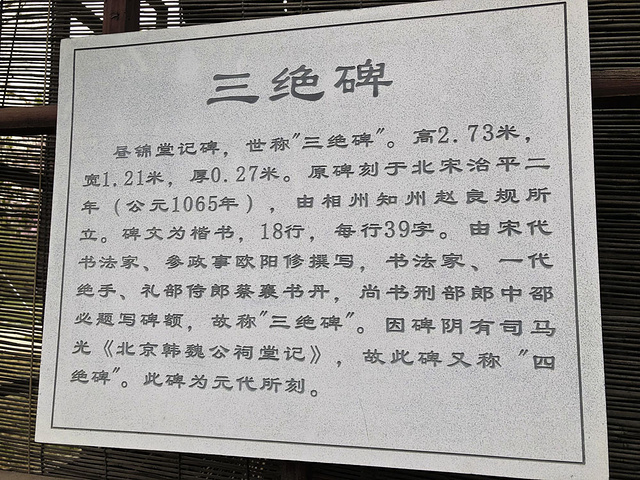 三绝碑
昼锦堂记碑，世称"三绝碑"。高2.73米，
宽1.21米，厚0.27米。原碑刻于北宋治平二
年（公元1065年），由相州知州赵良规所
立。碑文为楷书，18行，每行39字。由宋代
书法家、参政事欧阳修撰写，书法家、一代
绝手、礼部侍郎蔡襄书丹，尚书刑部郎中邵
必题写碑额，故称"三绝碑"。因碑阴有司马
光《北京韩魏公祠堂记》，故此碑又称"四
绝碑"。此碑为元代所刻。